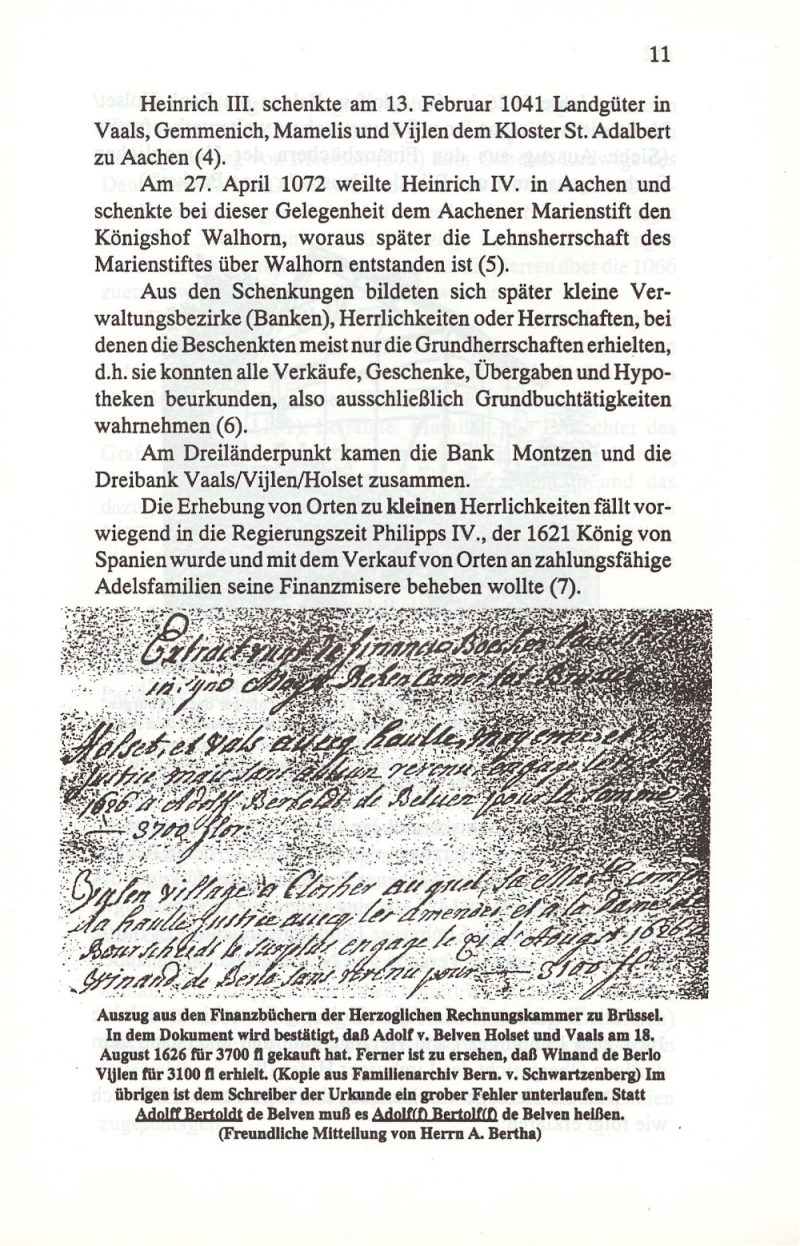 11
Heinrich III. schenkte am 13. Februar 1041 Landgüter in
Vaals, Gemmenich, Mamelis und Vijlen dem Kloster St. Adalbert
zu Aachen (4).
Am 27. April 1072 weilte Heinrich IV. in Aachen und
schenkte bei dieser Gelegenheit dem Aachener Marienstift den
Königshof Walhorn, woraus später die Lehnsherrschaft des
Marienstiftes über Walhorn entstanden ist (5).
Aus den Schenkungen bildeten sich später kleine Ver-
waltungsbezirke (Banken), Herrlichkeiten oder Herrschaften, bei
denen die Beschenkten meist nur die Grundherrschaften erhielten,
d.h. sie konnten alle Verkäufe, Geschenke, Übergaben und Hypo-
theken beurkunden, also ausschließlich Grundbuchtätigkeiten
wahrnehmen (6).
Am Dreiländerpunkt kamen die Bank Montzen und die
Dreibank Vaals/Vijlen/Holset zusammen.
Die Erhebung von Orten zu kleinen Herrlichkeiten fällt vor-
wiegend in die Regierungszeit Philipps IV., der 1621 König von
Spanien wurde und mit dem Verkauf von Orten an zahlungsfähige
Adelsfamilien seine Finanzmisere beheben wollte (7).
Extract vuyt de financie Boecken
Rekencamer tot Brussel
Holset, et Vals avecq haulte, moyenne et
Justice mais sans aulcun revenu engagé
1626 a Adolff Bertoldt de Belven pour la somme
3700 flor.
village a Clocher auquel sa Maté
la haulte Justice avecq les amendes et a la Dame de
Bourscheidt le surplus engagé le d'Augst 1626
Winand de Berlo sans revenu pour 3100 fl.
Auszug aus den Finanzbüchern der Herzoglichen Rechnungskammer zu Brüssel.
In dem Dokument wird bestätigt, daß Adolf v. Belven Holset und Vaals am 18.
August 1626 für 3700 fl gekauft hat. Ferner ist zu ersehen, daß Winand de Berlo
Vijlen für 3100 fl erhielt. (Kopie aus Familienarchiv Bern. v. Schwartzenberg) Im
übrigen ist dem Schreiber der Urkunde ein grober Fehler unterlaufen. Statt
Adolff Bertoldt de Belven muß es Adolf(f) Bertolf(f) de Belven heißen.
(Freundliche Mitteilung von Herrn A. Bertha)